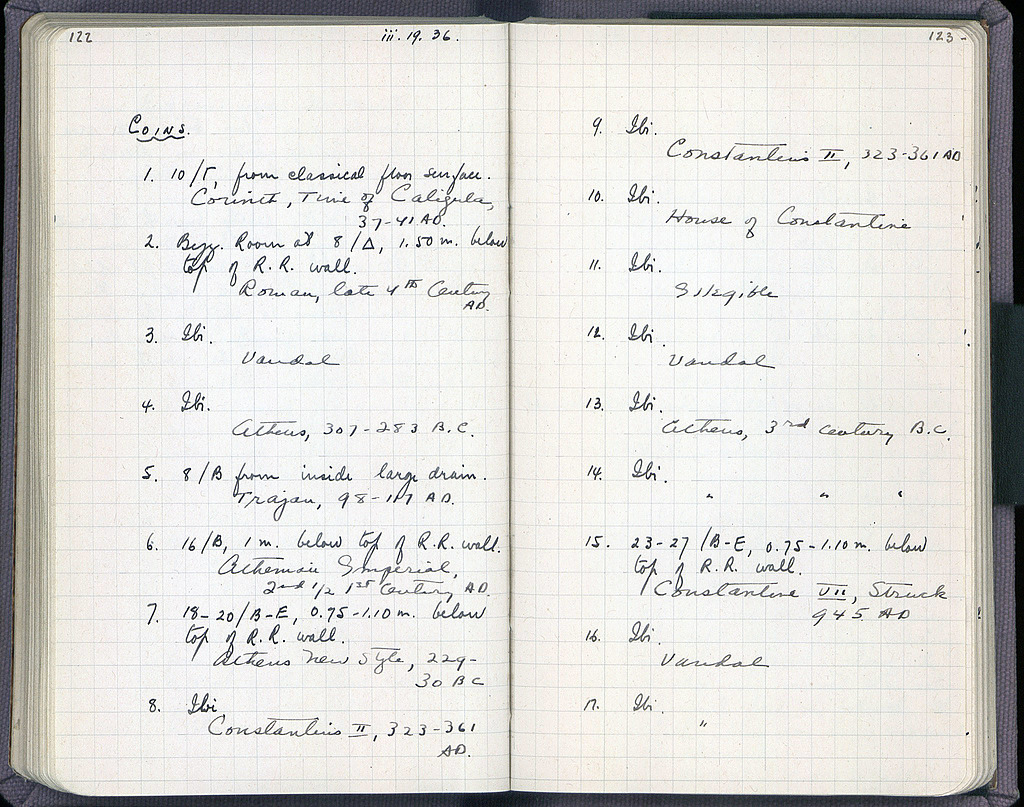 122
iii. 19. 36.
Coins.
1. 10/Γ, from classical floor surface.
Corinth, Time of Caligula,
37-41 AD.
2. Byz. Room at 8/Δ, 1.50 m. below
top of R.R. wall.
Roman, late 4th Century
AD.
3. Ibi.
Vandal
4. Ibi.
Athens, 307-283 B.C.
5. 8/B from inside large drain.
Trajan, 98-117 AD.
6. 16/B, 1 m. below top of R.R. wall.
Athenian Imperial,
2nd 1/2 1st Century AD.
7. 18-20/B-E, 0.75-1.10 m. below
top of R.R. wall.
Athens New Style, 229-
30 BC
8. Ibi
Constantius II, 323-361
AD.
123-
9. Ibi.
Constantius II, 323-361 AD
10. Ibi.
House of Constantine
11. Ibi.
Illegible
12. Ibi.
Vandal
13. Ibi.
Athens, 3rd century B.C.
14. Ibi.
" " "
15. 23-27/B-E, 0.75-1.10 m. below
top of R.R. wall.
Constantine VII, Struck
945 AD
16. Ibi.
Vandal
17. Ibi.
"